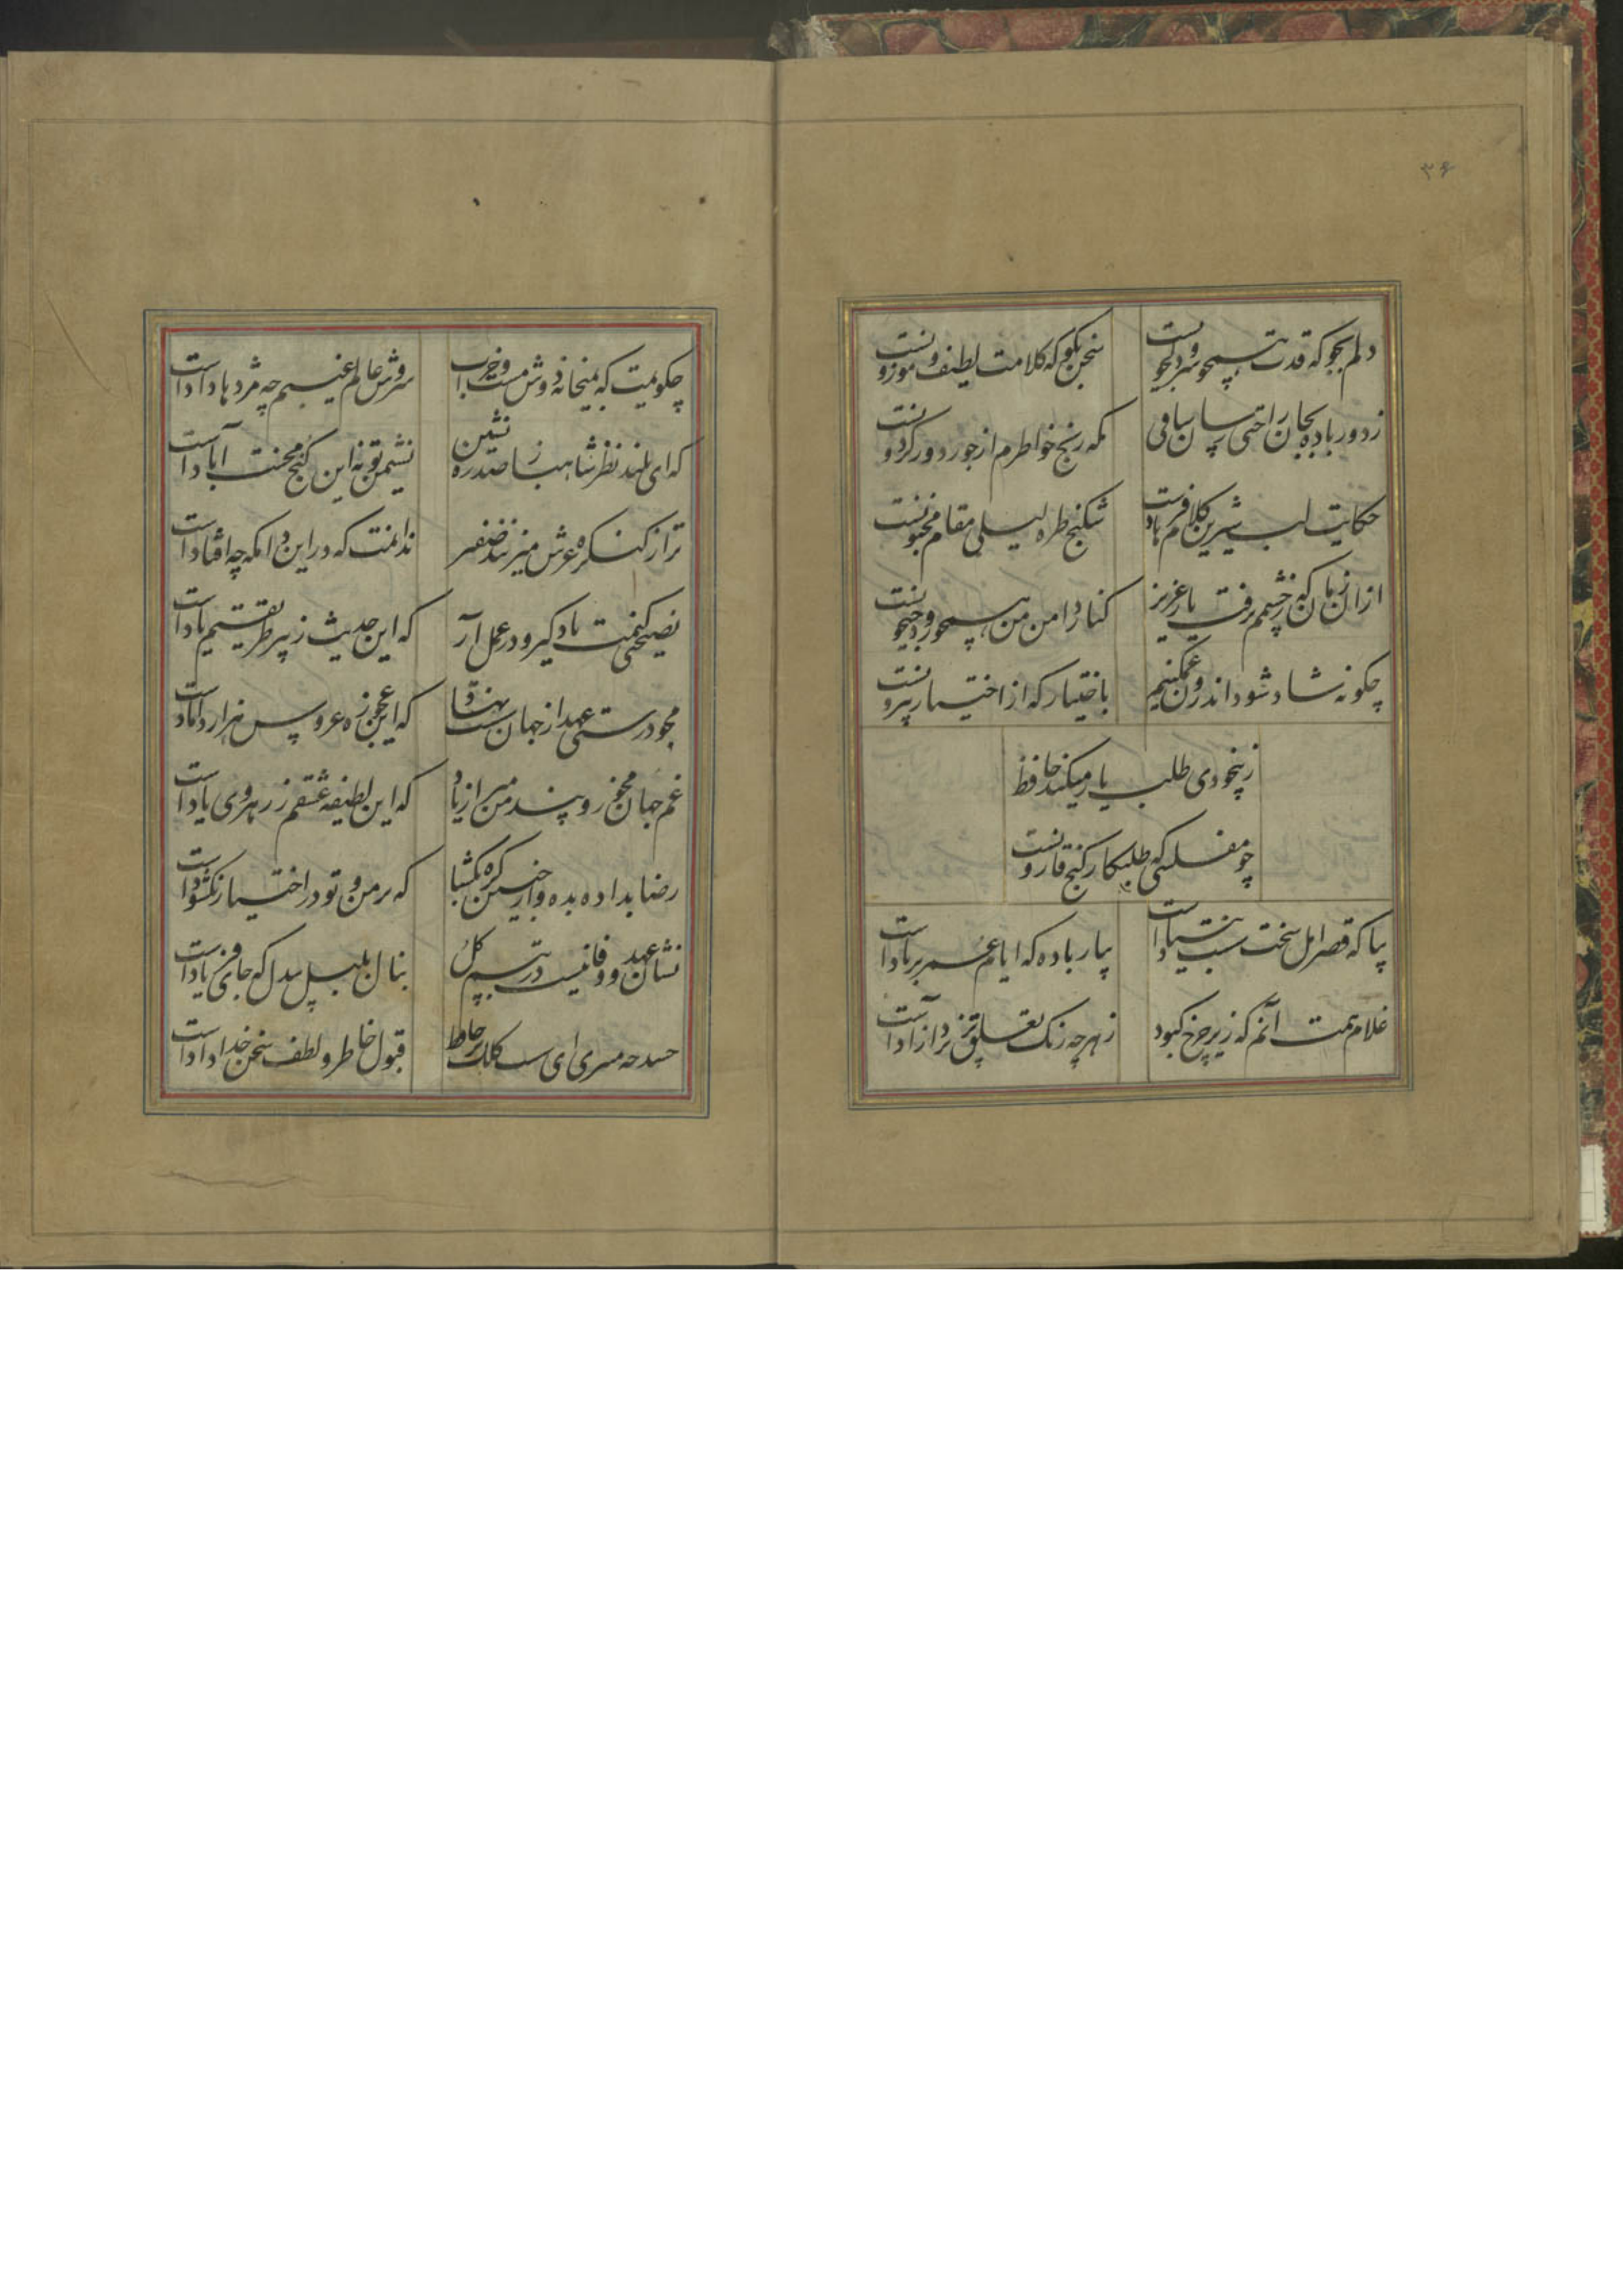 ۳۶
دلم بجو که قدت همچو سرو دلجویست
سخن بگو که کلامت لطیف و موزونست
ز دور باده بجان راحتی رسان ساقی
که رنج خواطرم از جور دور گردونست
حکایت لب شیرین کلام فرهادست
شکنج طره لیلی مقام مجنونست
از آن زمان که ز چشمم برفت یار عزیز
کنار دامن من همچو رود جیحونست
چگونه شاد شود اندرون غمگینم
باختیار که از اختیار بیرونست
ز بیخودی طلب یار میکند حافظ
چو مفلسی که طلبکار گنج قارونست
بیا که قصر امل سخت سست بنیادست
بیار باده که ایام عمر بر بادست
غلام همت آنم که زیر چرخ کبود
ز هر چه رنگ تعلق پذیرد آزادست
چگویمت که بمیخانه دوش مست و خراب
سروش عالم غیبم چه مژدها دادست
که ای بلند نظر شاهباز صدره نشین
نشیمن تو نه این کنج محنت آبادست
ترا ز کنگره عرش میزنند صفیر
ندانمت که در این دامگه چه افتادست
نصیحتی کنمت یاد گیر و در عمل آر
که این حدیث ز پیر طریقتم یادست
مجو درستی عهد از جهان سست نهاد
که این عجوزه عروس هزار دامادست
غم جهان مخور و پند من مبر از یاد
که این لطیفه عشقم ز رهروی یادست
رضا بداده بده وز جبین گره بگشا
که بر من و تو در اختیار نگشودست
نشان عهد و وفا نیست در تبسم گل
بنال بلبل بیدل که جای فریادست
حسد چه میبری ای سست نظم بر حافظ
قبول خاطر و لطف سخن خدادادست